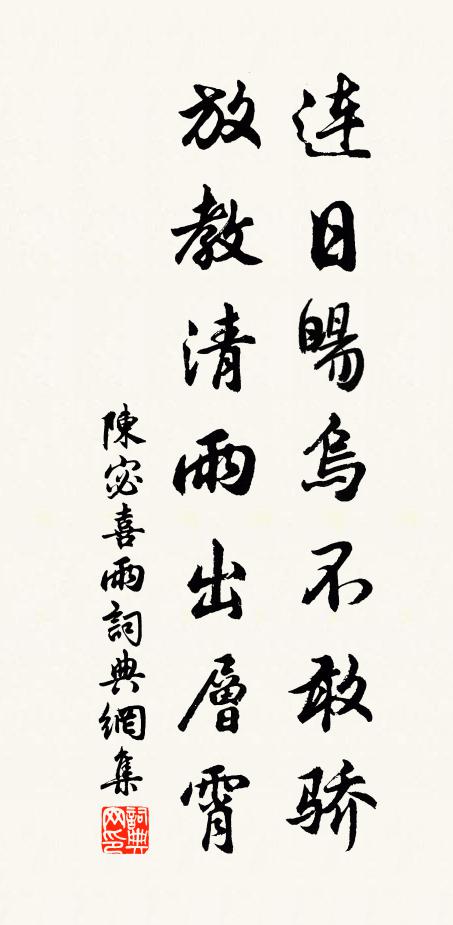 连日暘烏不敢骄
放教清雨出層霄
陳宓喜雨詞典網集
詞典网印